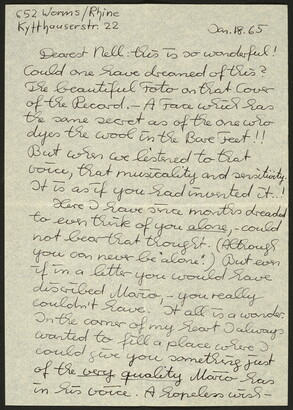 652 Worms/Rhine
Kyffhäuserstr. 22
Jan. 18. 65
Dearest Nell: this is so wonderful!
Could one have dreamed of this?
The beautiful Foto on that Cover
of the Record. – A Face which has
the same secret as of the one who
dyes the wool in the Bare Feet!!
But when we listened to that
voice, that musicality and sensitivity.
It is as if you had invented it..!
Here I have since months dreaded
to even think of you alone, – could
not bear that thought. (Although
you can never be alone!) But even
if in a letter you would have
described Mario, – you really
couldn't have. It all is a wonder.
In the corner of my heart I always
wanted to fill a place where I
could give you something just
of the very quality Mario has
in his voice. A hopeless wish –